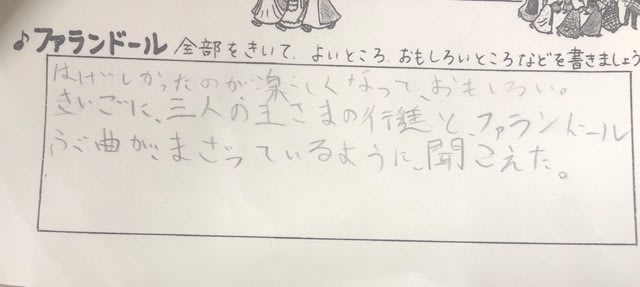 ♪ファランドール 全部をきいて、よいところ、おもしろいところなどを書きましょう
はげしかったのが、楽しくなって、おもしろい。
さいごに、三人の王さまの行進と、ファランドール
ふう曲が、まざっているように、聞こえた。